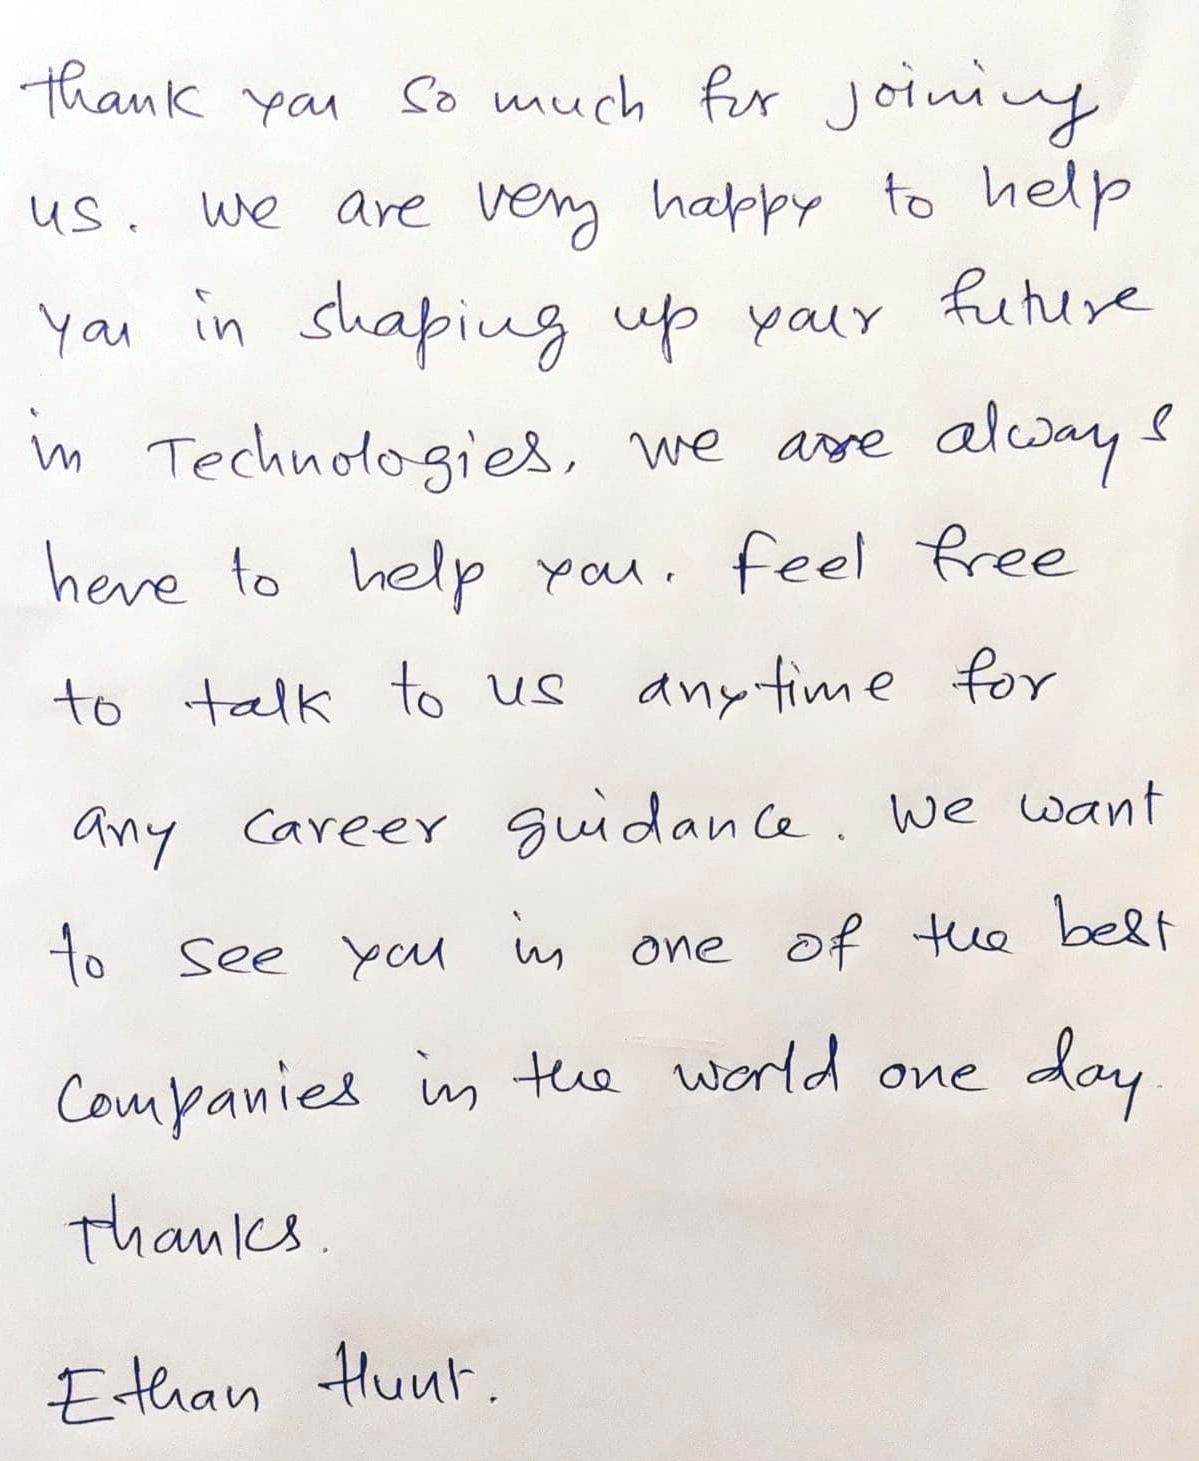 Thank you so much for joining
us. We are very happy to help
you in shaping up your future
in Technologies. We are always
here to help you. feel free
to talk to us anytime for
any career guidance. We want
to see you in one of the best
Companies in the world one day.
Thanks.
Ethan Hunt.